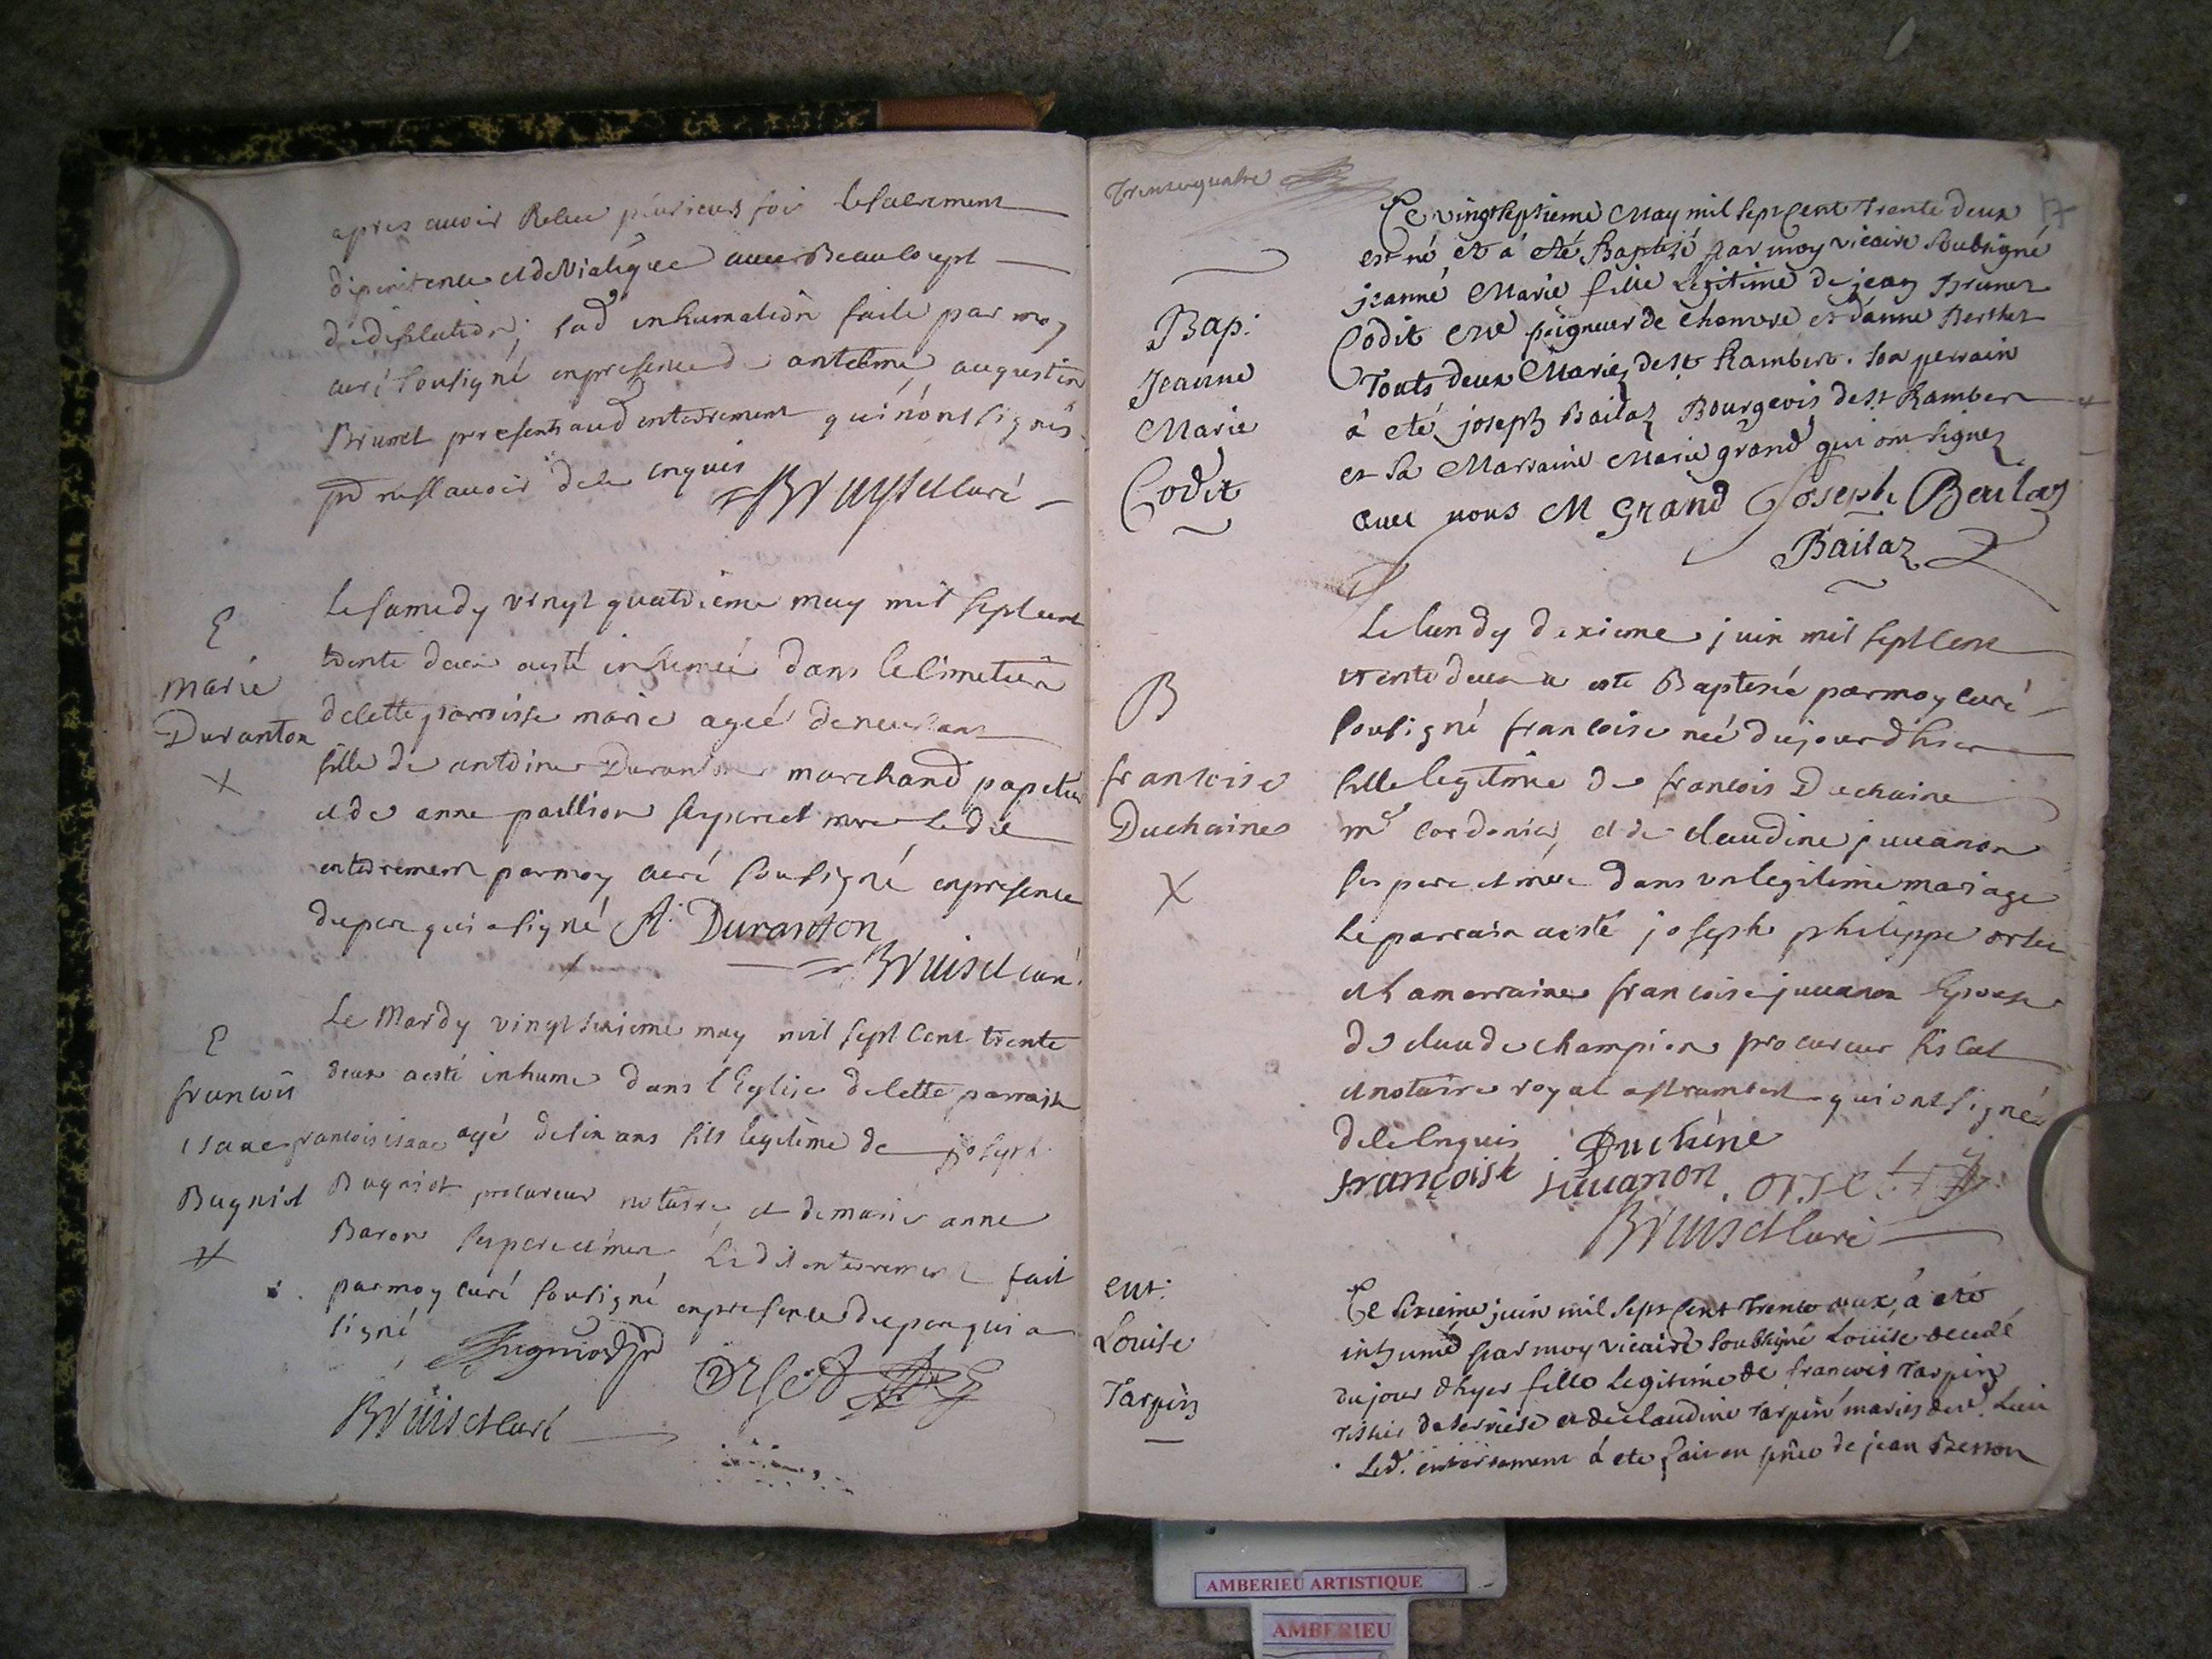 apres auoir Receu plusieurs fois le sacrement
de penitence et de Viatique auec Beaucoupt
de deuotion; lad inhumation faite par moy
curé sousigné en presence de antelme augustin
Brunet presents aud enterrement qui n'ont signés
pr ne sçauoir de ce enquis Bruyset curé
E
marie
Duranton
Le samedy vingt quatrieme may mil sept cent
trente deux a esté inhumée dans le cimetiere
de cette paroisse marie agée de neuf ans
fille de antoine Duranton marchand papetier
et de anne paillion ses pere et mere le dit
enterrement par moy curé sousigné en presence
du pere qui a signé A. Duranton
Bruiset curé.
E
francois
isaac
Bugniot
Le Mardy vingt sixieme may mil sept cent trente
deux a esté inhume dans l'Eglise de cette paroisse
francois isaac agé de six ans fils legitime de joseph
Bugniot procureur notaire, et de marie anne
Baron ses pere et mere Le dit enterrement fait
par moy curé sousigné en presence du pere qui a
signé
Bugniod Orset
Bruiset curé
Trente quatre
17
Bap:
Jeanne
Marie
Codit
Le vingt septieme May mil sept cent trente deux
est né et à eté Baptisé par moy vicaire soubsigné
jeanne Marie fille Legitime de jean Brunet
Codit peigneur de chanvre et d'anne Berthet
Touts deux Mariez de st Rambert. son perrain
à eté joseph Bailaz Bourgeois de st Rambert
et sa Marraine Marie grand qui ont signez
auec nous M Grand Joseph Beilaz
Bailaz
B
francoise
Duchaine
Le lundy dexieme juin mil sept cent
trente deux a este Baptisée par moy curé
sousigné francoise née du jourd'hier
fille legitime de francois Duchaine
mᵉ cordonier, et de claudine juuanon
ses pere et mere dans vn legitime mariage
le parrain a esté joseph philippe orset
et la marraine francoise juuanon Epouse
de claude champion procureur fiscal
et notaire royal a st rambert qui ont signés
de ce enquis Duchéne
françoise juuanon . orset
Bruiset curé
ent:
Louise
Tarpin
Le sixieme juin mil sept cent trente deux, à eté
inhumé par moy vicaire soubsigné Louise
du jour d'hyer fille legitime de francois Tarpin
et de claudine Tarpin mariés dud. Lieu
Led. enterrement à eté fait en pñce de jean Besson
AMBERIEU ARTISTIQUE
AMBERIEU